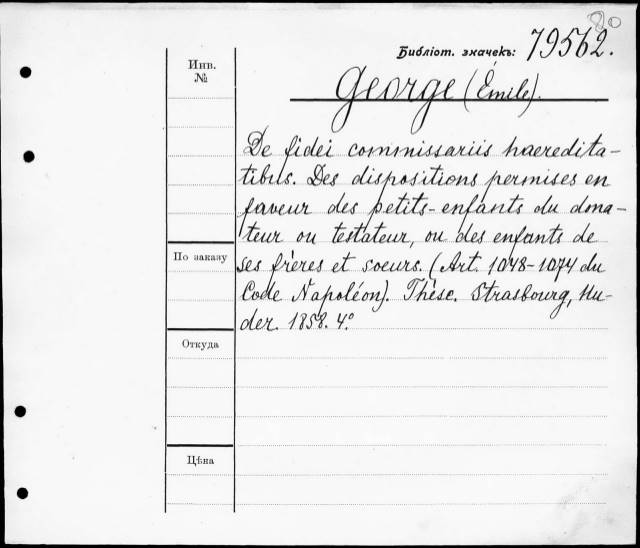 80
Библіот. значекъ: 79562.
Инв.
№
George (Émile).
De fidei commissariis haeredita-
tibus. Des dispositions permises en
faveur des petits-enfants du dona-
teur ou testateur, ou des enfants de
ses frères et soeurs. (Art. 1048-1074 du
Code Napoléon). Thèse. Strasbourg, Hu-
der. 1858. 4º.
По заказу
Откуда
Цѣна